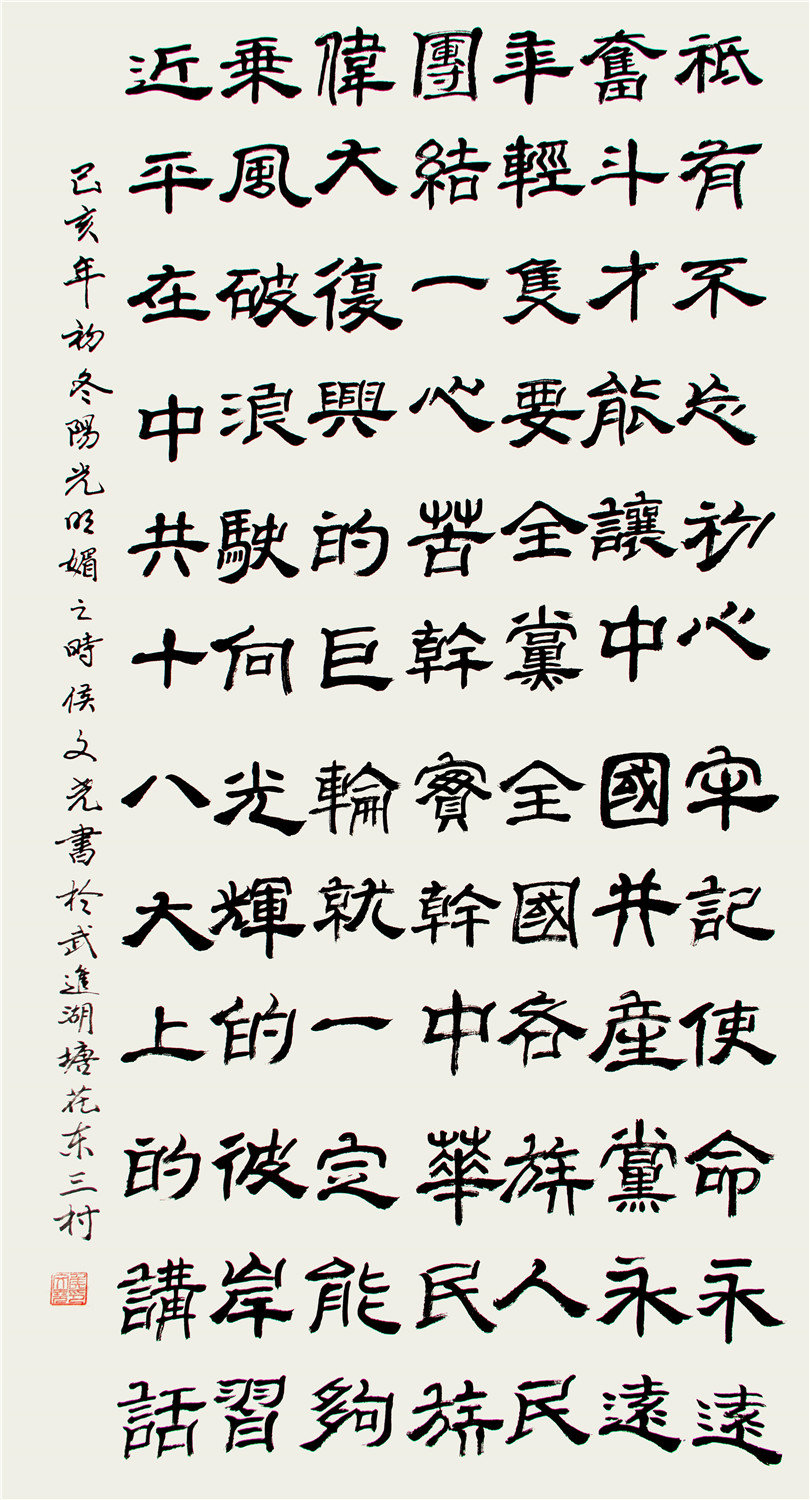 祇有不忘初心牢記使命永遠
奮斗才能讓中國共產黨永遠
年輕隻要全黨全國各族人民
團結一心苦幹實幹中華民族
偉大復興的巨輪就一定能夠
乘風破浪駛向光輝的彼岸習
近平在中共十八大上的講話
己亥年初冬陽光明媚之時侯文尧書於武進湖塘花东三村